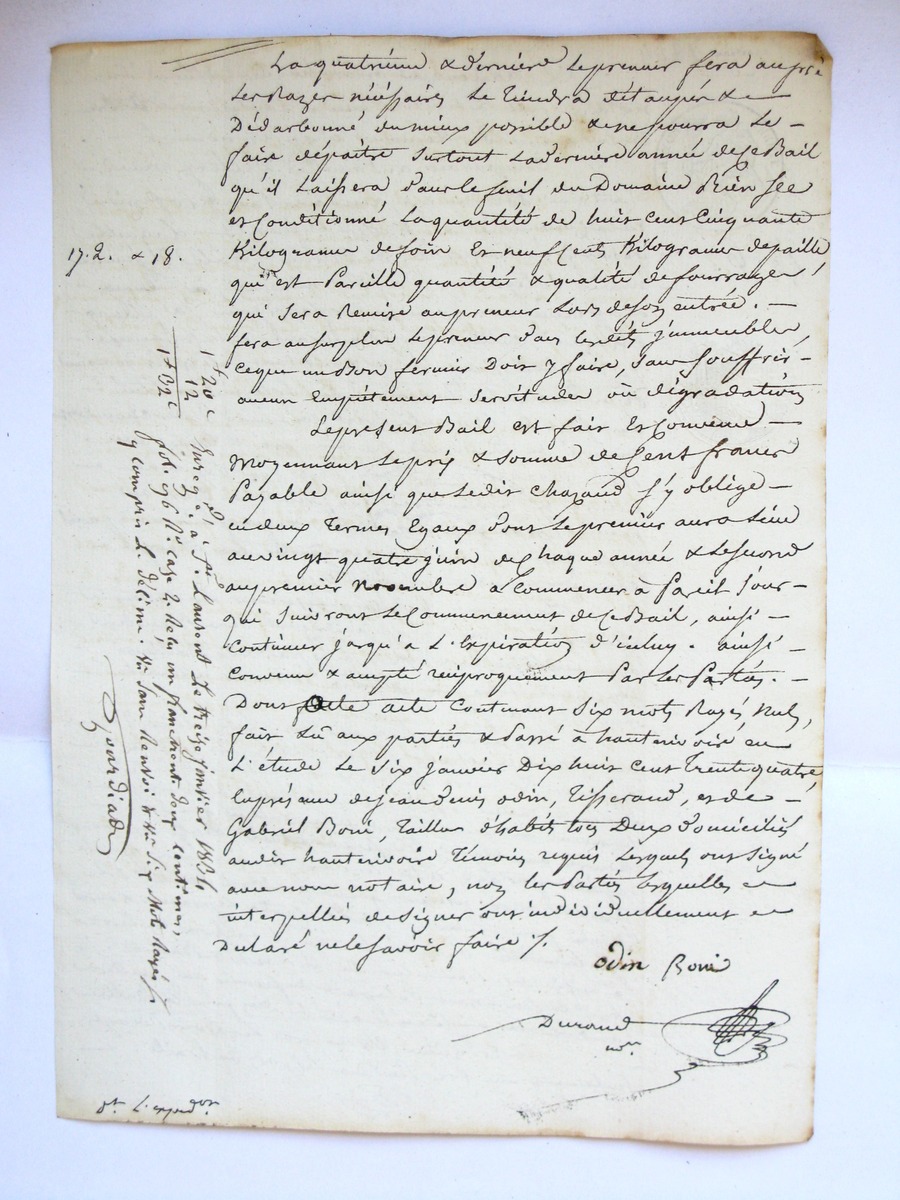 La quatrième & dernière le preneur fera au pré
les Razes nécéssaires le tiendra détaupé & -
Dédarbonné du mieux possible & ne pourra le -
faire dépaître surtout la dernière année de Ce Bail
qu'il Laissera dans le fenil du Domaine Bien
et Conditionné La quantité de huit cent Cinquante
Kilogrames de foin Et neuf Cents Kilogrames de paille
qui est Pareille quantité & qualité de fourrages
qui sera Remise au preneur Lors de son entrée. -
fera au surplus le preneur dans lesdits jmmeubles
Ce que un Bon fermier Doit y faire, sans souffrir -
aucun Empiétement servitudes ou dégradations
Le présent Bail est fait Et Convenu -
Moyennant le prix & somme de Cent francs
Payable ainsi que ledit Chazaud s'y oblige -
en deux termes Egaux dont le premier aura lieu
au vingt quatre juin de Chaque année & le second
au premier novembre à Commencer à Pareil jours -
qui suivront le Commencement de Ce Bail, ainsi -
Continuer jusqu'à L'Expiration d'icelui. ainsi -
Convenu & accepté réciproquement Par les Parties. -
Dont acte Contenant six mots Rayés Nuls,
fait Lû aux parties & Passé à hauterivoire en
L'étude Le six janvier Dix huit Cent Trente quatre,
En présence de jean denis odin, Tisserand, et de -
Gabriel Boni, Tailleur d'habits tous Deux domiciliés
audit hauterivoire Témoins requis Lesquels ont signé
avec nous notaire, non les Parties lesquelles -
interpellées de signer ont individuellement -
Déclaré ne le savoir faire ./.
odin Boni
Durand
nore
17. 2. & 18.
1f 20c
12
1f 32c
Enregé à St Laurent Le treize janvier 1834
fol. 96 Ro Case 2. Reçu un franc trente deux centimes,
y compris le décime.
dt L'expedon